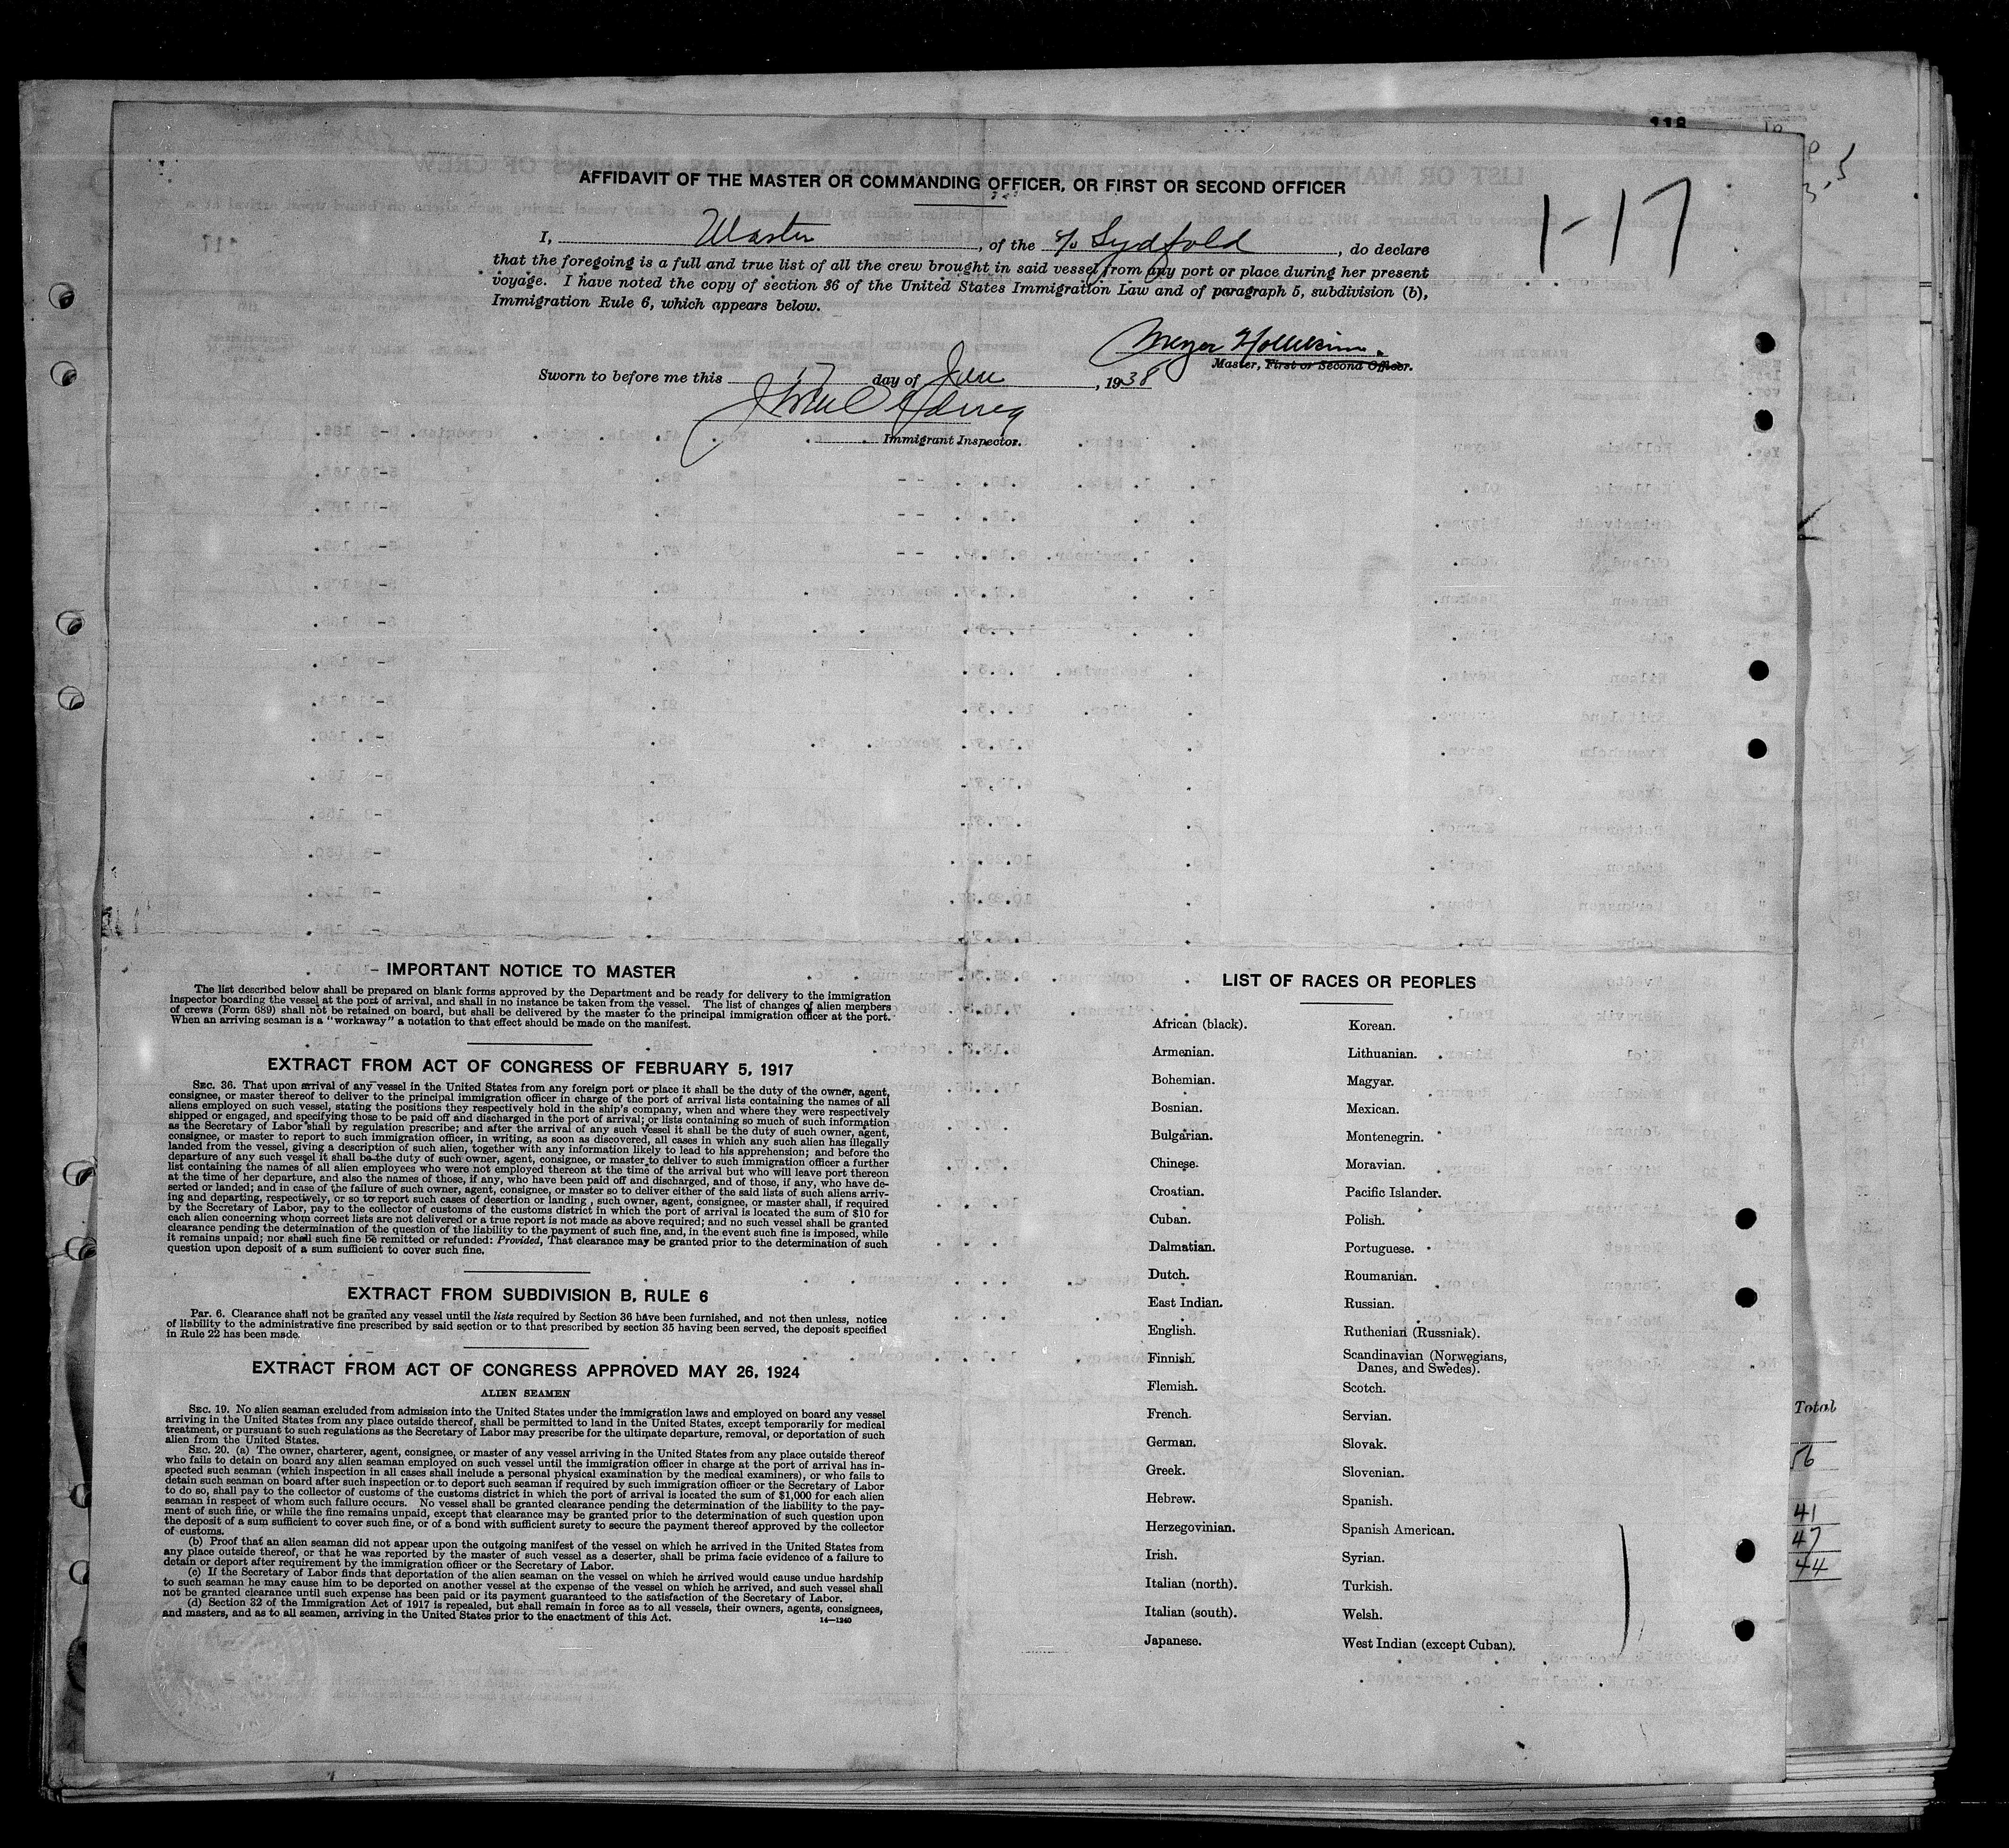 AFFIDAVIT OF THE MASTER OR COMMANDING OFFICER, OR FIRST OR SECOND OFFICER
1-17
I, Master, of the S/S Sydfold, do declare
that the foregoing is a full and true list of all the crew brought in said vessel from any port or place during her present
voyage. I have noted the copy of section 36 of the United States Immigration Law and of paragraph 5, subdivision (b),
Immigration Rule 6, which appears below.
Meyer
Master, First or Second Officer.
Sworn to before me this 17 day of June, 1938
Immigrant Inspector.
IMPORTANT NOTICE TO MASTER
The list described below shall be prepared on blank forms approved by the Department and be ready for delivery to the immigration
inspector boarding the vessel at the port of arrival, and shall in no instance be taken from the vessel. The list of changes of alien members
of crews (Form 689) shall not be retained on board, but shall be delivered by the master to the principal immigration officer at the port.
When an arriving seaman is a "workaway" a notation to that effect should be made on the manifest.
EXTRACT FROM ACT OF CONGRESS OF FEBRUARY 5, 1917
SEC. 36. That upon arrival of any vessel in the United States from any foreign port or place it shall be the duty of the owner, agent,
consignee, or master thereof to deliver to the principal immigration officer in charge of the port of arrival lists containing the names of all
aliens employed on such vessel, stating the positions they respectively hold in the ship's company, when and where they were respectively
shipped or engaged, and specifying those to be paid off and discharged in the port of arrival; or lists containing so much of such information
as the Secretary of Labor shall by regulation prescribe; and after the arrival of any such vessel it shall be the duty of such owner, agent,
consignee, or master to report to such immigration officer, in writing, as soon as discovered, all cases in which any such alien has illegally
landed from the vessel, giving a description of such alien, together with any information likely to lead to his apprehension; and before the
departure of any such vessel it shall be the duty of such owner, agent, consignee, or master to deliver to such immigration officer a further
list containing the names of all alien employees who were not employed thereon at the time of the arrival but who will leave port thereon
at the time of her departure, and also the names of those, if any, who have been paid off and discharged, and of those, if any, who have de-
serted or landed; and in case of the failure of such owner, agent, consignee, or master so to deliver either of the said lists of such aliens arriv-
ing and departing, respectively, or so to report such cases of desertion or landing, such owner, agent, consignee, or master shall, if required
by the Secretary of Labor, pay to the collector of customs of the customs district in which the port of arrival is located the sum of $10 for
each alien concerning whom correct lists are not delivered or a true report is not made as above required; and no such vessel shall be granted
clearance pending the determination of the question of the liability to the payment of such fine, and, in the event such fine is imposed, while
it remains unpaid; nor shall such fine be remitted or refunded: Provided, That clearance may be granted prior to the determination of such
question upon deposit of a sum sufficient to cover such fine.
EXTRACT FROM SUBDIVISION B, RULE 6
Par. 6. Clearance shall not be granted any vessel until the lists required by Section 36 have been furnished, and not then unless, notice
of liability to the administrative fine prescribed by said section or to that prescribed by section 35 having been served, the deposit specified
in Rule 22 has been made.
EXTRACT FROM ACT OF CONGRESS APPROVED MAY 26, 1924
ALIEN SEAMEN
SEC. 19. No alien seaman excluded from admission into the United States under the immigration laws and employed on board any vessel
arriving in the United States from any place outside thereof, shall be permitted to land in the United States, except temporarily for medical
treatment, or pursuant to such regulations as the Secretary of Labor may prescribe for the ultimate departure, removal, or deportation of such
alien from the United States.
SEC. 20. (a) The owner, charterer, agent, consignee, or master of any vessel arriving in the United States from any place outside thereof
who fails to detain on board any alien seaman employed on such vessel until the immigration officer in charge at the port of arrival has in-
spected such seaman (which inspection in all cases shall include a personal physical examination by the medical examiners), or who fails to
detain such seaman on board after such inspection or to deport such seaman if required by such immigration officer or the Secretary of Labor
to do so, shall pay to the collector of customs of the customs district in which the port of arrival is located the sum of $1,000 for each alien
seaman in respect of whom such failure occurs. No vessel shall be granted clearance pending the determination of the liability to the pay-
ment of such fine, or while the fine remains unpaid, except that clearance may be granted prior to the determination of such question upon
the deposit of a sum sufficient to cover such fine, or of a bond with sufficient surety to secure the payment thereof approved by the collector
of customs.
(b) Proof that an alien seaman did not appear upon the outgoing manifest of the vessel on which he arrived in the United States from
any place outside thereof, or that he was reported by the master of such vessel as a deserter, shall be prima facie evidence of a failure to
detain or deport after requirement by the immigration officer or the Secretary of Labor.
(c) If the Secretary of Labor finds that deportation of the alien seaman on the vessel on which he arrived would cause undue hardship
to such seaman he may cause him to be deported on another vessel at the expense of the vessel on which he arrived, and such vessel shall
not be granted clearance until such expense has been paid or its payment guaranteed to the satisfaction of the Secretary of Labor.
(d) Section 32 of the Immigration Act of 1917 is repealed, but shall remain in force as to all vessels, their owners, agents, consignees,
and masters, and as to all seamen, arriving in the United States prior to the enactment of this Act.
14—1240
LIST OF RACES OR PEOPLES
African (black).
Armenian.
Bohemian.
Bosnian.
Bulgarian.
Chinese.
Croatian.
Cuban.
Dalmatian.
Dutch.
East Indian.
English.
Finnish.
Flemish.
French.
German.
Greek.
Hebrew.
Herzegovinian.
Irish.
Italian (north).
Italian (south).
Japanese.
Korean.
Lithuanian.
Magyar.
Mexican.
Montenegrin.
Moravian.
Pacific Islander.
Polish.
Portuguese.
Roumanian.
Russian.
Ruthenian (Russniak).
Scandinavian (Norwegians,
Danes, and Swedes).
Scotch.
Servian.
Slovak.
Slovenian.
Spanish.
Spanish American.
Syrian.
Turkish.
Welsh.
West Indian (except Cuban).
Total
56
41
47
44